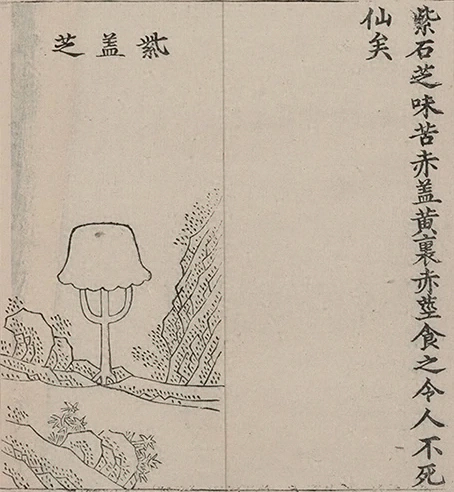 紫石芝味苦赤盖黄裏赤莖食之令人不死
仙矣
紫盖芝